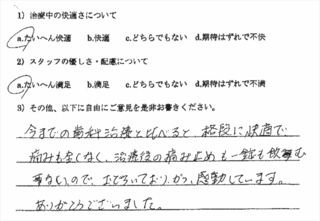 1）治療中の快適さについて
a.たいへん快適　b.快適　c.どちらでもない　d.期待はずれで不快
2）スタッフの優しさ・配慮について
a.たいへん満足　b.満足　c.どちらでもない　d.期待はずれで不満
3）その他、以下に自由にご意見を是非お書きください。
今までの歯科治療と比べると、格段に快適で
痛みも全くなく、治療後の痛み止めも一錠も飲む
事ないので、おどろいており、かつ、感動しています。
ありがとうございました。